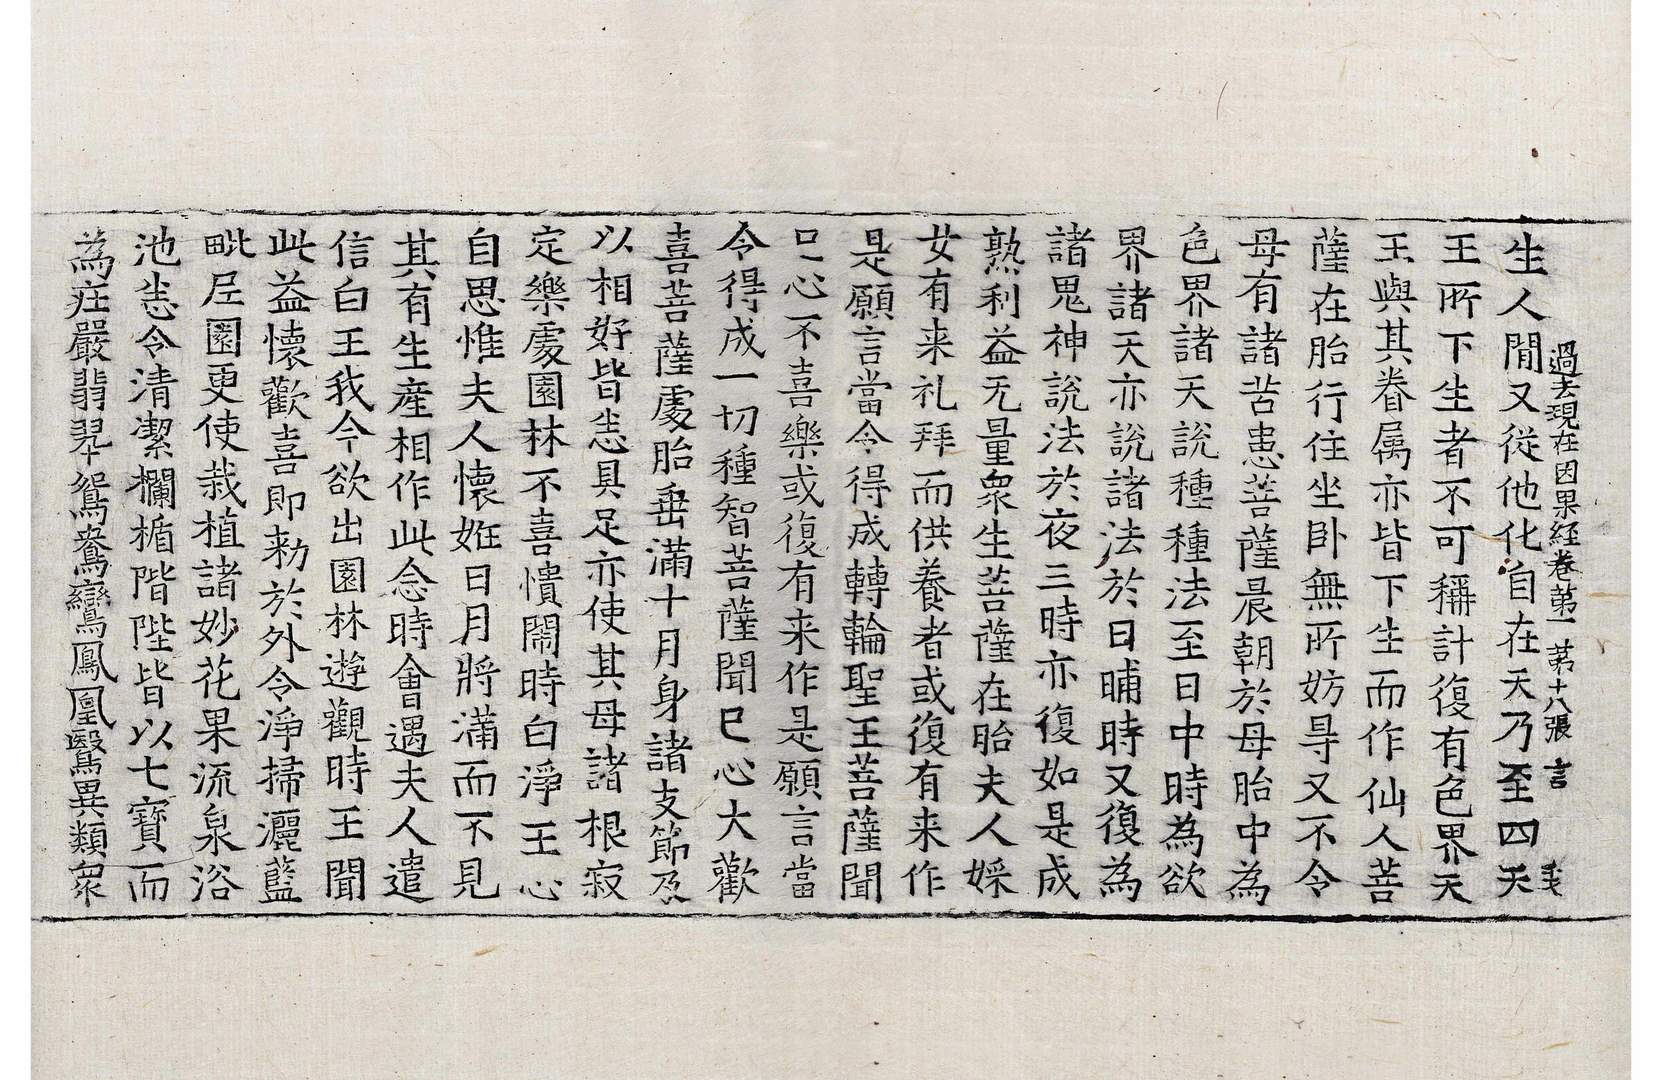 過去現在因果経卷第一 第十八張 言
生人閒又従他化自在天乃至四天
王所下生者不可稱計復有色界天
王與其眷属亦皆下生而作仙人菩
薩在胎行住坐卧無所妨㝵又不令
母有諸苦患菩薩晨朝於母胎中為
色界諸天說種種法至日中時為欲
界諸天亦說諸法於日晡時又復為
諸鬼神說法於夜三時亦復如是成
熟利益无量衆生菩薩在胎夫人婇
女有来礼拜而供養者或復有来作
是願言當令得成轉輪聖王菩薩聞
已心不喜樂或復有来作是願言當
令得成一切種智菩薩聞已心大歡
喜菩薩處胎垂滿十月身諸支節及
以相好皆悉具足亦使其母諸根寂
定樂處園林不喜憒閙時白淨王心
自思惟夫人懷姙日月將滿而不見
其有生産相作此念時會遇夫人遣
信白王我今欲出園林遊觀時王聞
此益懷歡喜即勑於外令淨掃灑藍
毗尼園更使栽植諸妙花果流泉浴
池悉令清潔欄楯階陛皆以七寶而
為庄嚴翡翠鴛鴦鸞鳳凰鷖異類衆